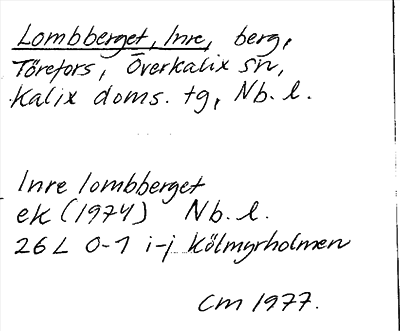 Lombberget, Inre, berg,
Törefors, Överkalix sn,
Kalix doms. tg, Nb. l.
Inre lombberget
ek (1974) Nb. l.
26 L 0-1 i-j Kölmyrholmen
CM 1977.